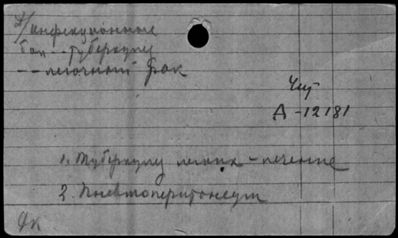 Д/инфекционные
бак -- туберкулез
-- легочный рак
Чит
Д-12181
1. Туберкулез легких - лечение
2. Пневмоперитонеум
Як